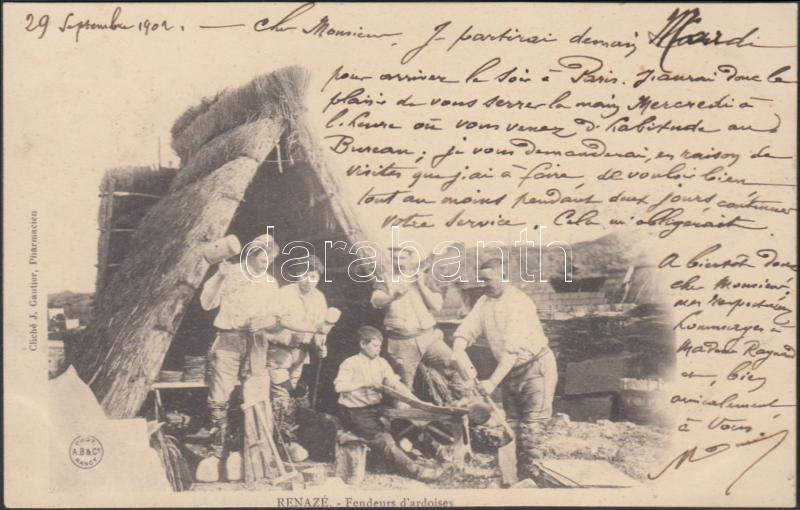 29 Septembre 1902. — Cher Monsieur,
Je partirai demain Mardi
pour arriver le soir à Paris. J'aurai donc le
plaisir de vous serrer la main Mercredi à
l'heure où vous venez d'habitude au
Bureau ; je vous demanderai, en raison de
visites que j'ai à faire, de vouloir bien,
tout au moins pendant deux jours, continuer
votre service. Cela m'obligerait.
A bientôt donc
cher Monsieur,
mes respectueux
hommages à
Madame
et, bien
amicalement
à Vous.
darabanth
Cliché J. Gautier, Pharmacien
PHOT
A.B & Cie
NANCY
RENAZÉ. - Fendeurs d'ardoises